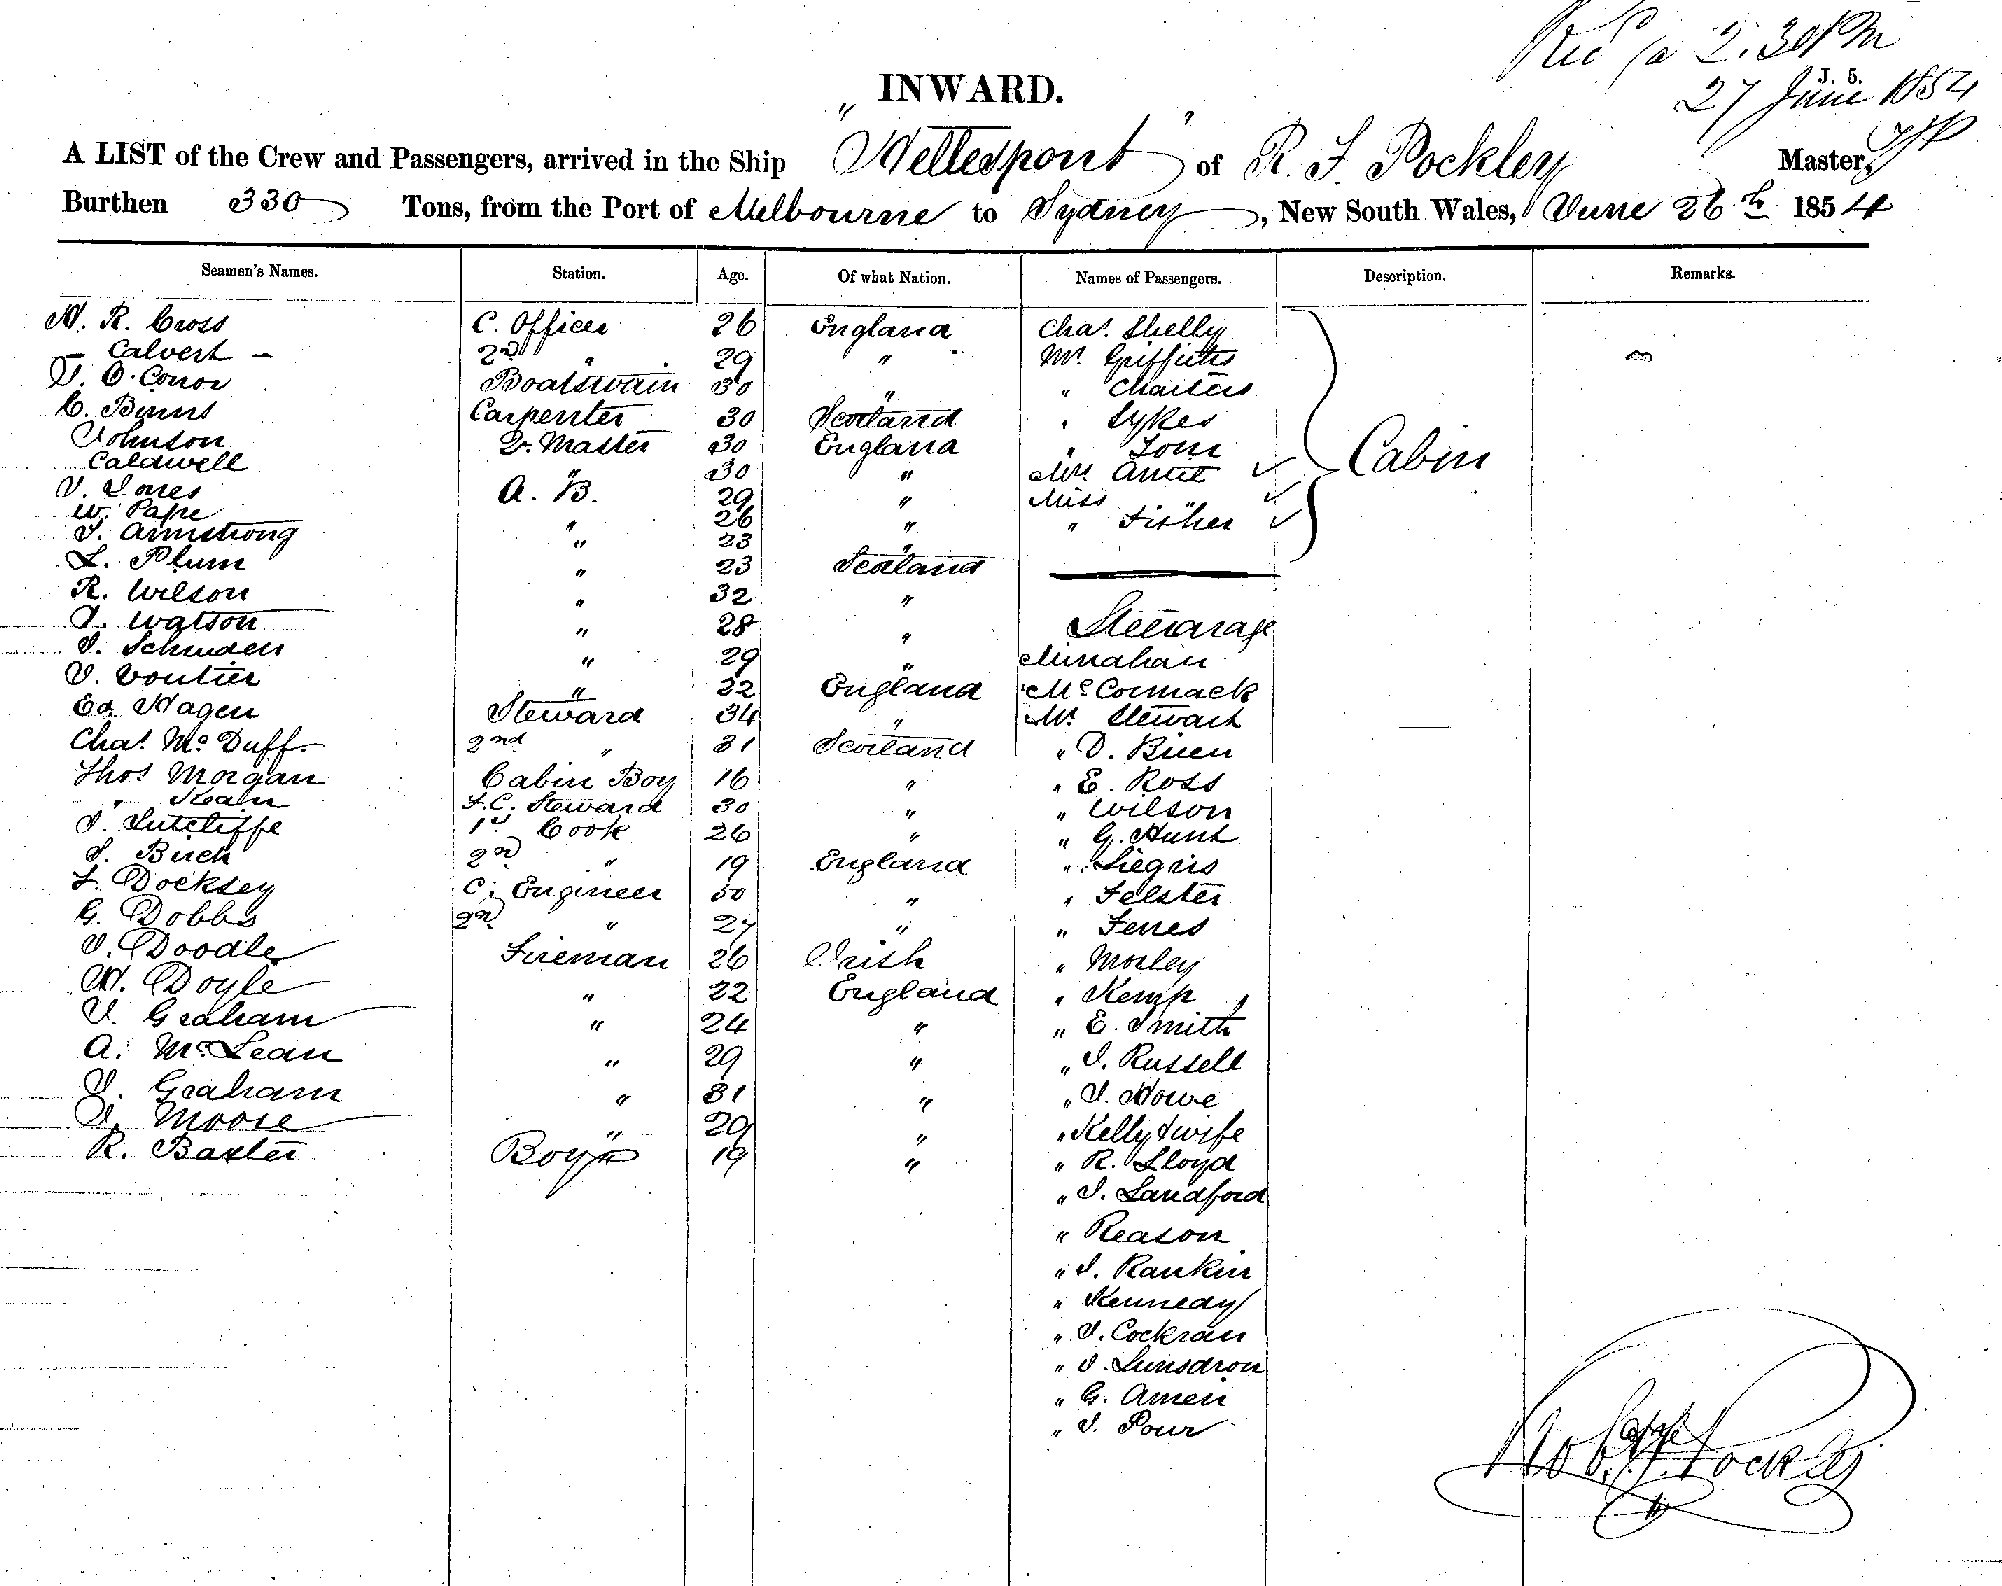 Rec'd 2.30 PM
J. 5.
27 June 1854
INWARD.
A LIST of the Crew and Passengers, arrived in the Ship "Hellespont" of R. F. Pockley Master,
Burthen 330 Tons, from the Port of Melbourne to Sydney, New South Wales, June 26th 1854
Seamen's Names. Station. Age. Of what Nation. Names of Passengers. Description. Remarks.
W. R. Cross C. Officer 26 England Chas. Shelly
— Calvert — 2nd " 29 " Mr. Griffiths
J. O. Conor Boatswain 30 " " Charters
C. Binns Carpenter 30 Scotland " Sykes
Johnson Qr. Master 30 England "
Caldwell " 30 " Mrs.
Cabin
J. Jones A. B. 29 " Miss "
W. Pape " 26 " " Fisher
J. Armstrong " 23 "
L. Plum " 23 Scotland
R. Wilson " 32 "
J. Watson " 28 " Steerage
J. " 29 " Minahan
J. Voutier " 22 England McCormack
Ed. Hagen Steward 34 " Mr. Stewart
Chas. McDuff 2nd " 31 Scotland " D.
Thos Morgan Cabin Boy 16 " " E. Ross
" Kean F.C. Steward 30 " " Wilson
J. Sutcliffe 1st Cook 26 " " G. Hunt
J. Birch 2nd " 19 England "
F. Docksey C. Engineer 50 " " Felster
G. Dobbs 2nd " 27 " "
J. Doodle Fireman 26 Irish " Morley
W. Doyle " 22 England " Kemp
J. Graham " 24 " " E. Smith
A. McLean " 29 " " J. Russell
J. Graham " 31 " " J. Howe
J. Moose " 29 " " Kelly & wife
R. Baxter Boy 19 " " R. Lloyd
" J. Landford
" Reason
" J. Rankin
" Kennedy
" J. Cockran
" J. Lunsdron
" G. Amen
" J. Pour
Robt. F. Pockley